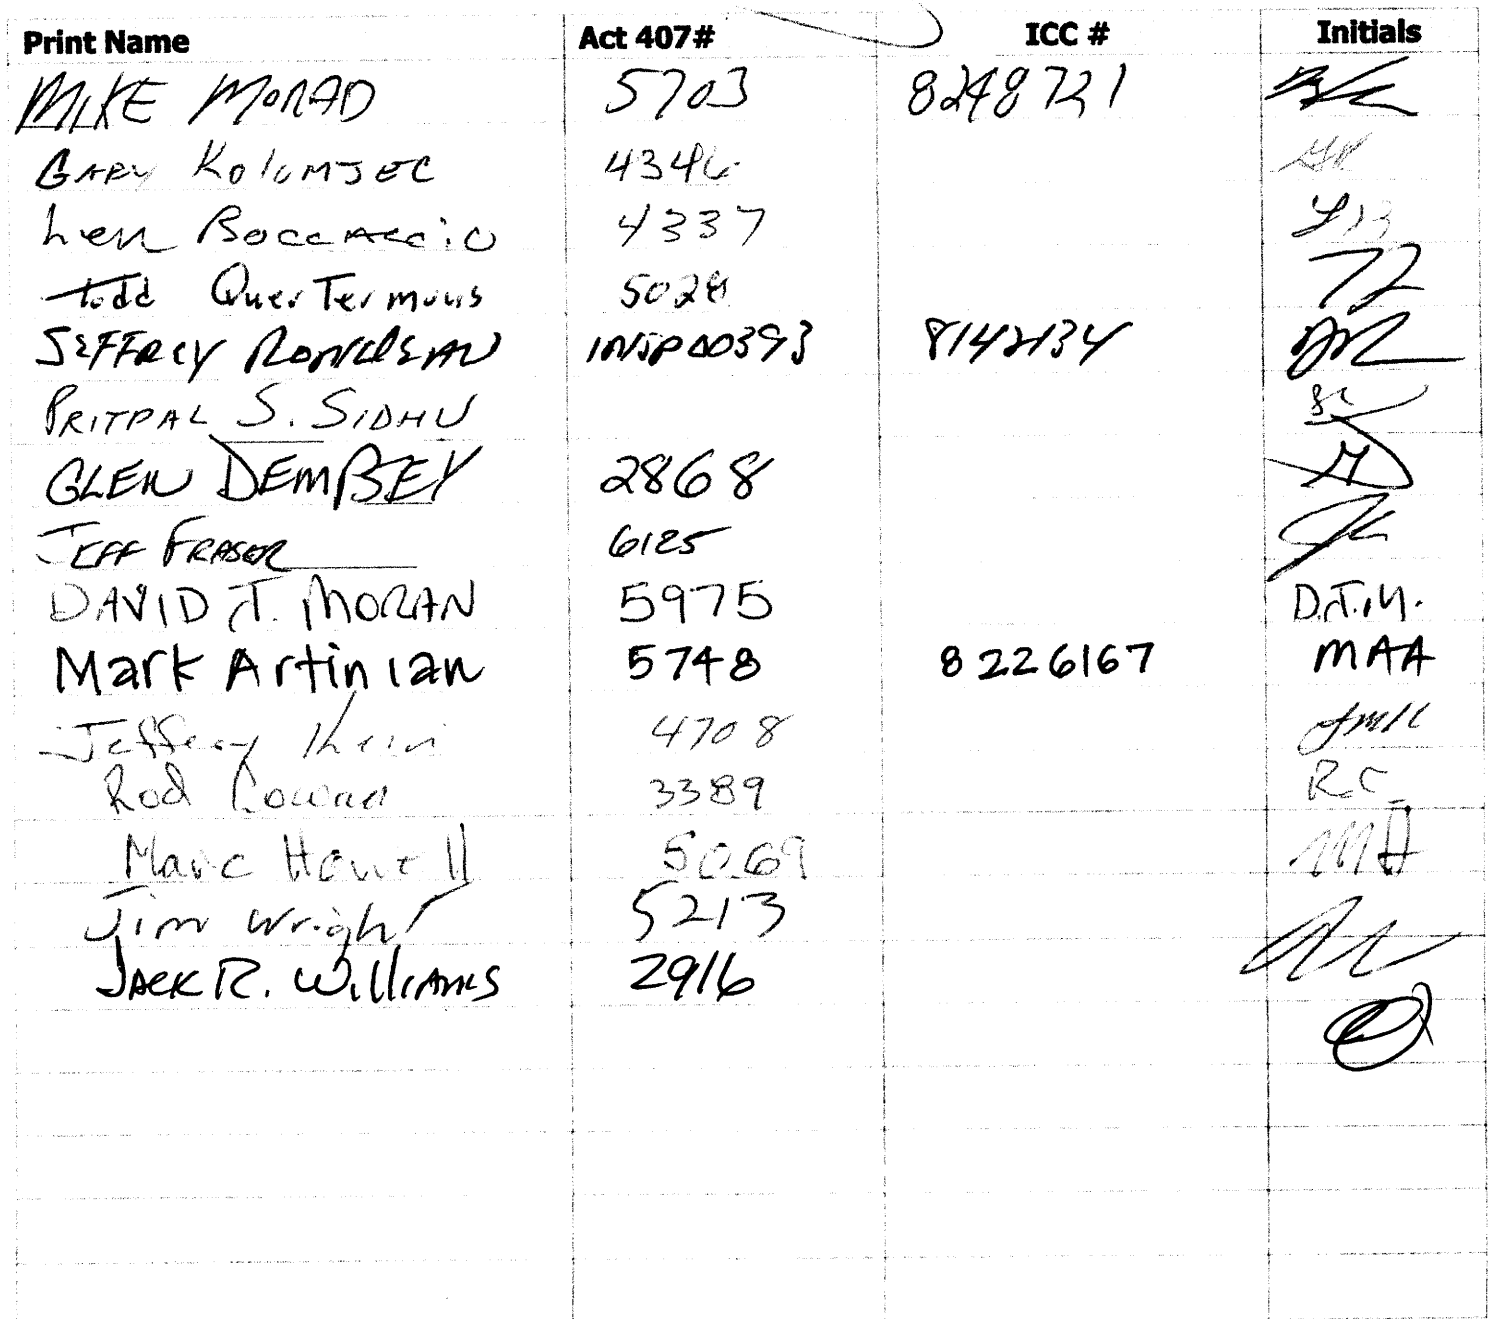 Print Name Act 407# ICC # Initials
MIKE MORAD 5703 8248721
GARY KOLOMJEC 4346 GK
Len Boccaccio 4337 LB
Todd QuerTermous 5028
JEFFREY RONDEAU INSP00393 8142134 JR
PRITPAL S. SIDHU
GLEN DEMPSEY 2868
JEFF FRASER 6125
DAVID T. MORAN 5975 D.T.M.
Mark Artinian 5748 8226167 MAA
Jeffery 4708 JMK
Rod Cowan 3389 R.C
Marc Howell 5069 MH
Jim Wright 5213
JACK R. WILLIAMS 2916